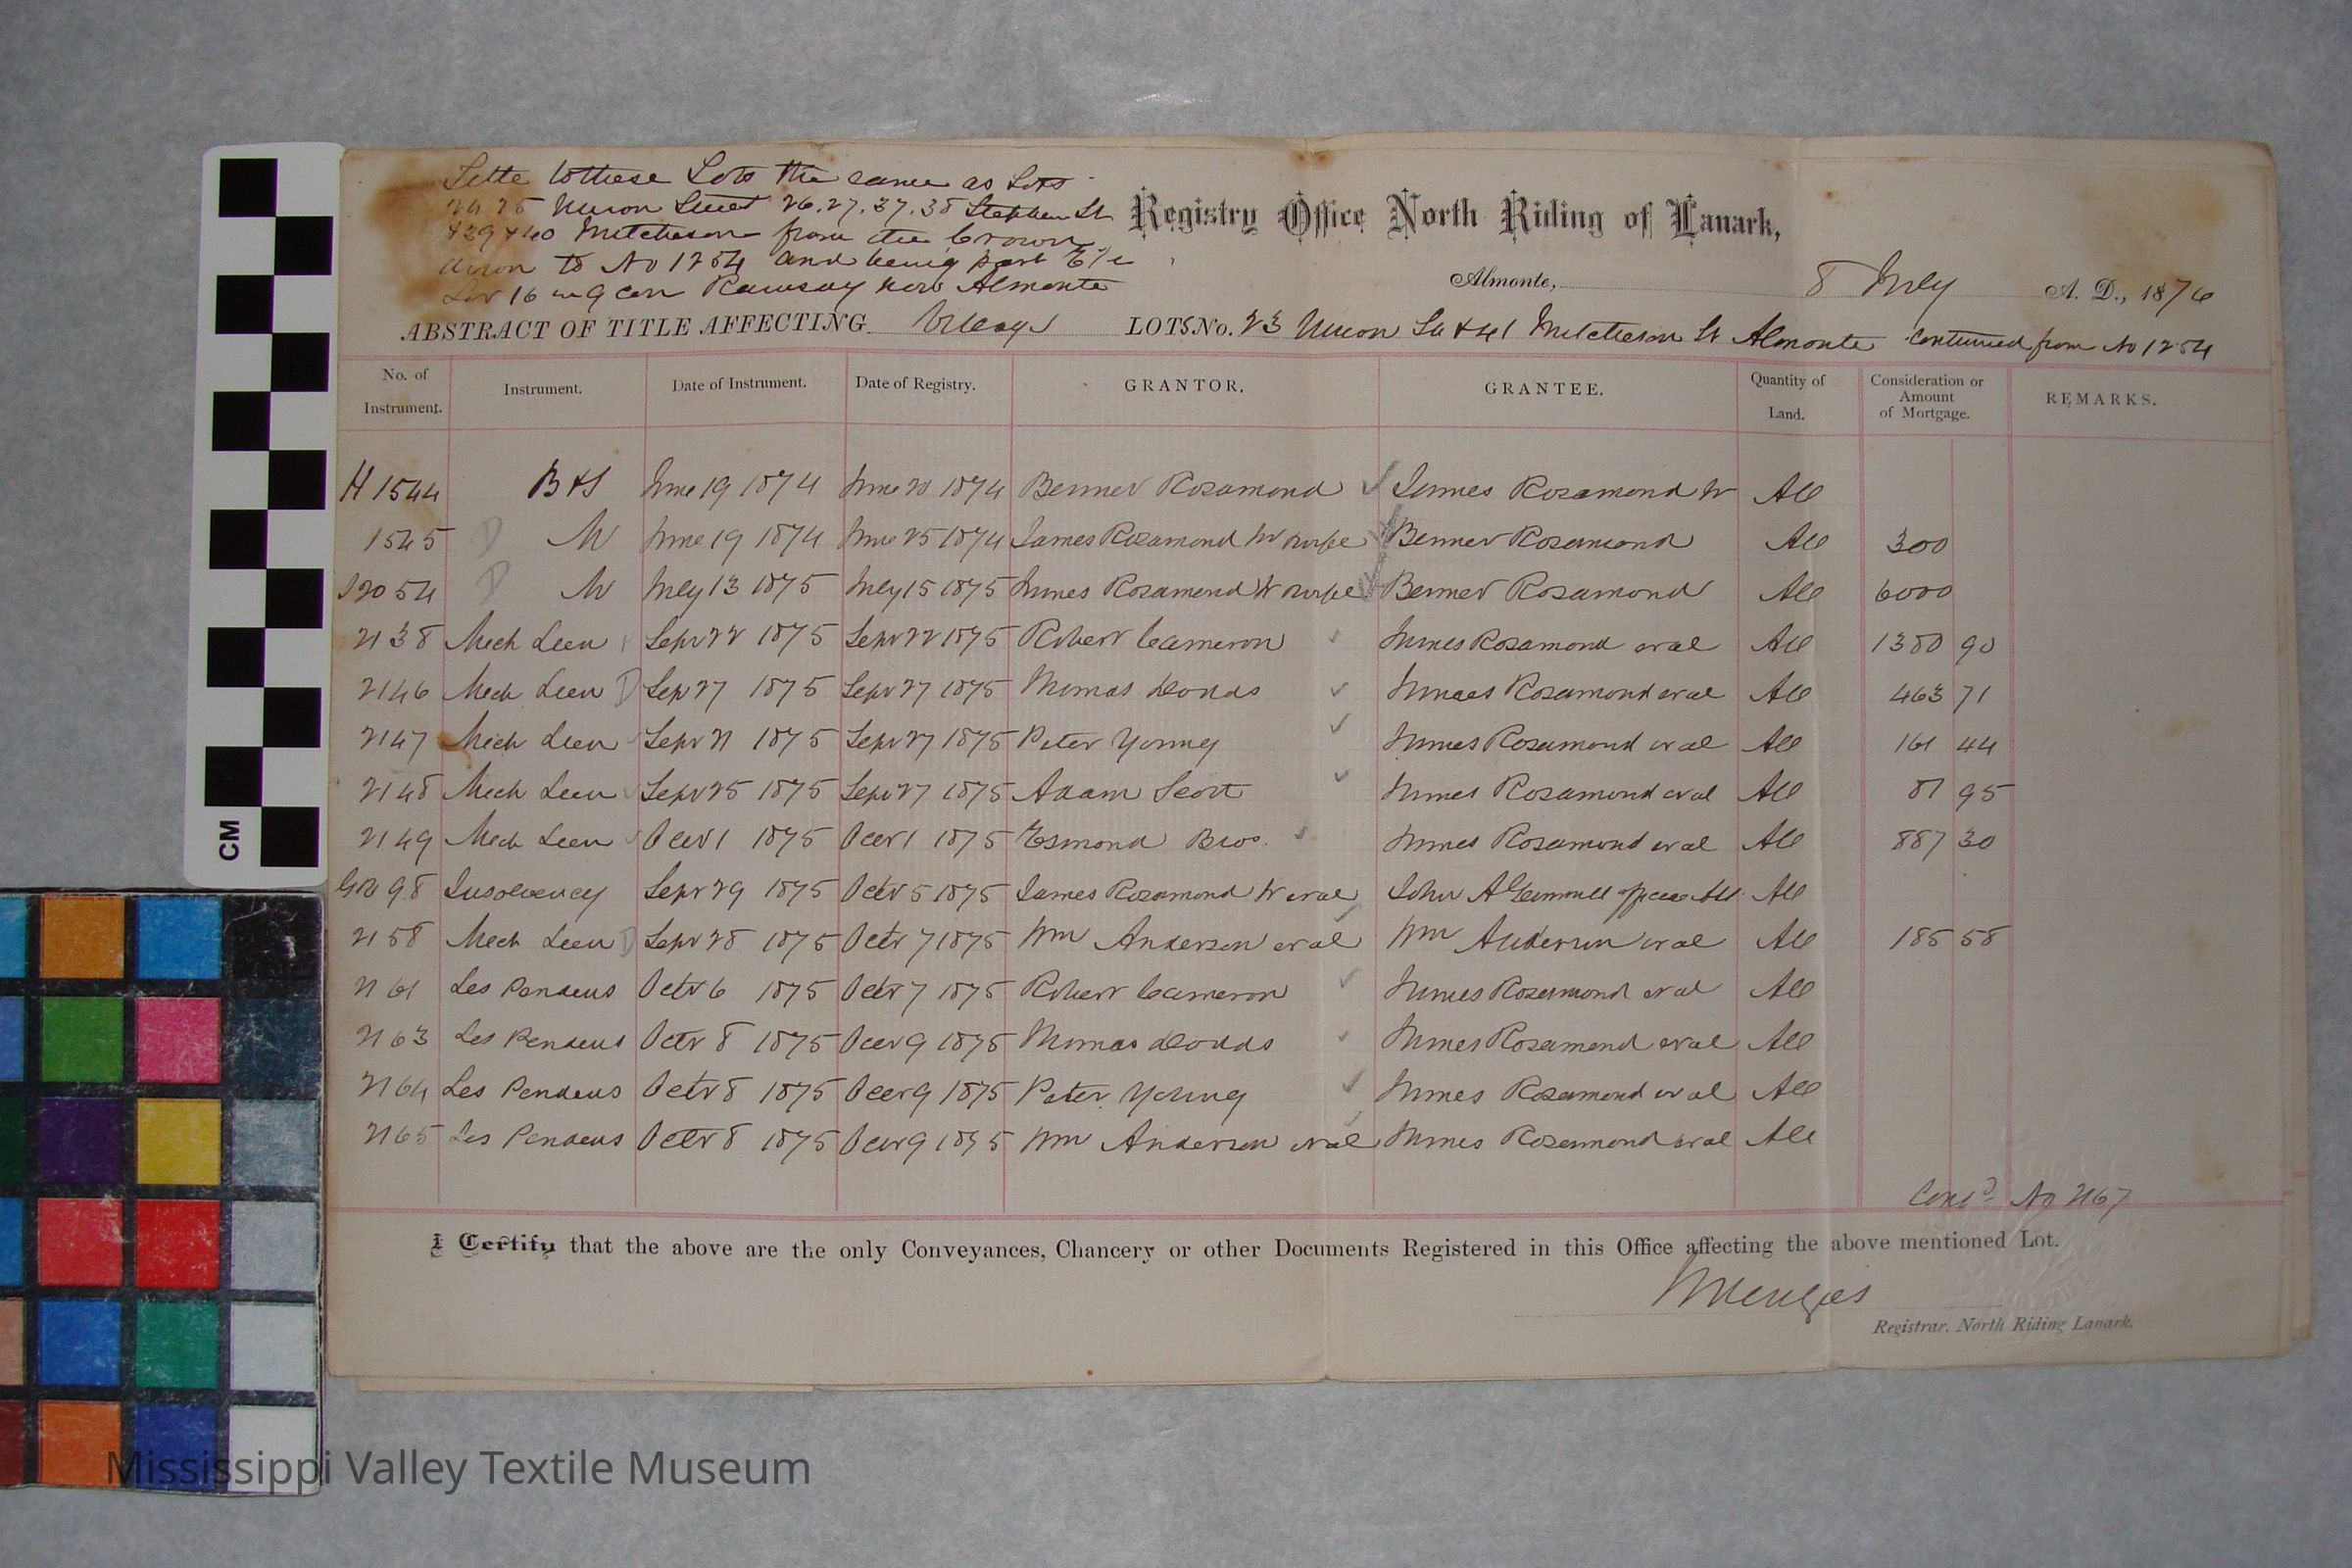 Title to these Lots the same as Lots
24 25 Union Street 26.27.37.38 Stephen St
& 39 & 40 Mitcheson from the Crown
down to No 1254 and being part E 1/2
Lot 16 in 9 con Ramsay now Almonte
Registry Office North Riding of Lanark,
Almonte, 8 July A. D., 1876
ABSTRACT OF TITLE AFFECTING Village LOTS No. 23 Union St & 41 Mitcheson St Almonte continued from No 1254
No. of Instrument. Instrument. Date of Instrument. Date of Registry. GRANTOR. GRANTEE. Quantity of Land. Consideration or Amount of Mortgage. REMARKS.
H 1544 B & S June 19 1874 June 20 1874 Bennet Rosamond James Rosamond Jr All
1545 D M June 19 1874 June 25 1874 James Rosamond Jr & wife Bennet Rosamond All 300
2054 D M July 13 1875 July 15 1875 James Rosamond Jr & wife Bennet Rosamond All 6000
2138 Mech Lien Sept 22 1875 Sept 22 1875 Robert Cameron James Rosamond et al All 1380 90
2146 Mech Lien D Sep 27 1875 Sept 27 1875 Thomas Dodds James Rosamond et al All 463 71
2147 Mech Lien Sept 21 1875 Sept 27 1875 Peter Young James Rosamond et al All 161 44
2148 Mech Lien Sept 25 1875 Sept 27 1875 Adam Scott James Rosamond et al All 81 95
2149 Mech Lien Oct 1 1875 Oct 1 1875 Esmond Bros. James Rosamond et al All 887 30
GR 98 Insolvency Sept 29 1875 Octr 5 1875 James Rosamond Jr et al John A Gemmill All
2158 Mech Lien D Sept 28 1875 Octr 7 1875 Wm Anderson et al Wm Anderson et al All 185 58
2161 Les Pendens Octr 6 1875 Octr 7 1875 Robert Cameron James Rosamond et al All
2163 Les Pendens Octr 8 1875 Octr 9 1875 Thomas Dodds James Rosamond et al All
2164 Les Pendens Octr 8 1875 Octr 9 1875 Peter Young James Rosamond et al All
2165 Les Pendens Octr 8 1875 Octr 9 1875 Wm Anderson et al James Rosamond et al All
Contd No 2167
I Certify that the above are the only Conveyances, Chancery or other Documents Registered in this Office affecting the above mentioned Lot.
Registrar. North Riding Lanark.
CM
Mississippi Valley Textile Museum